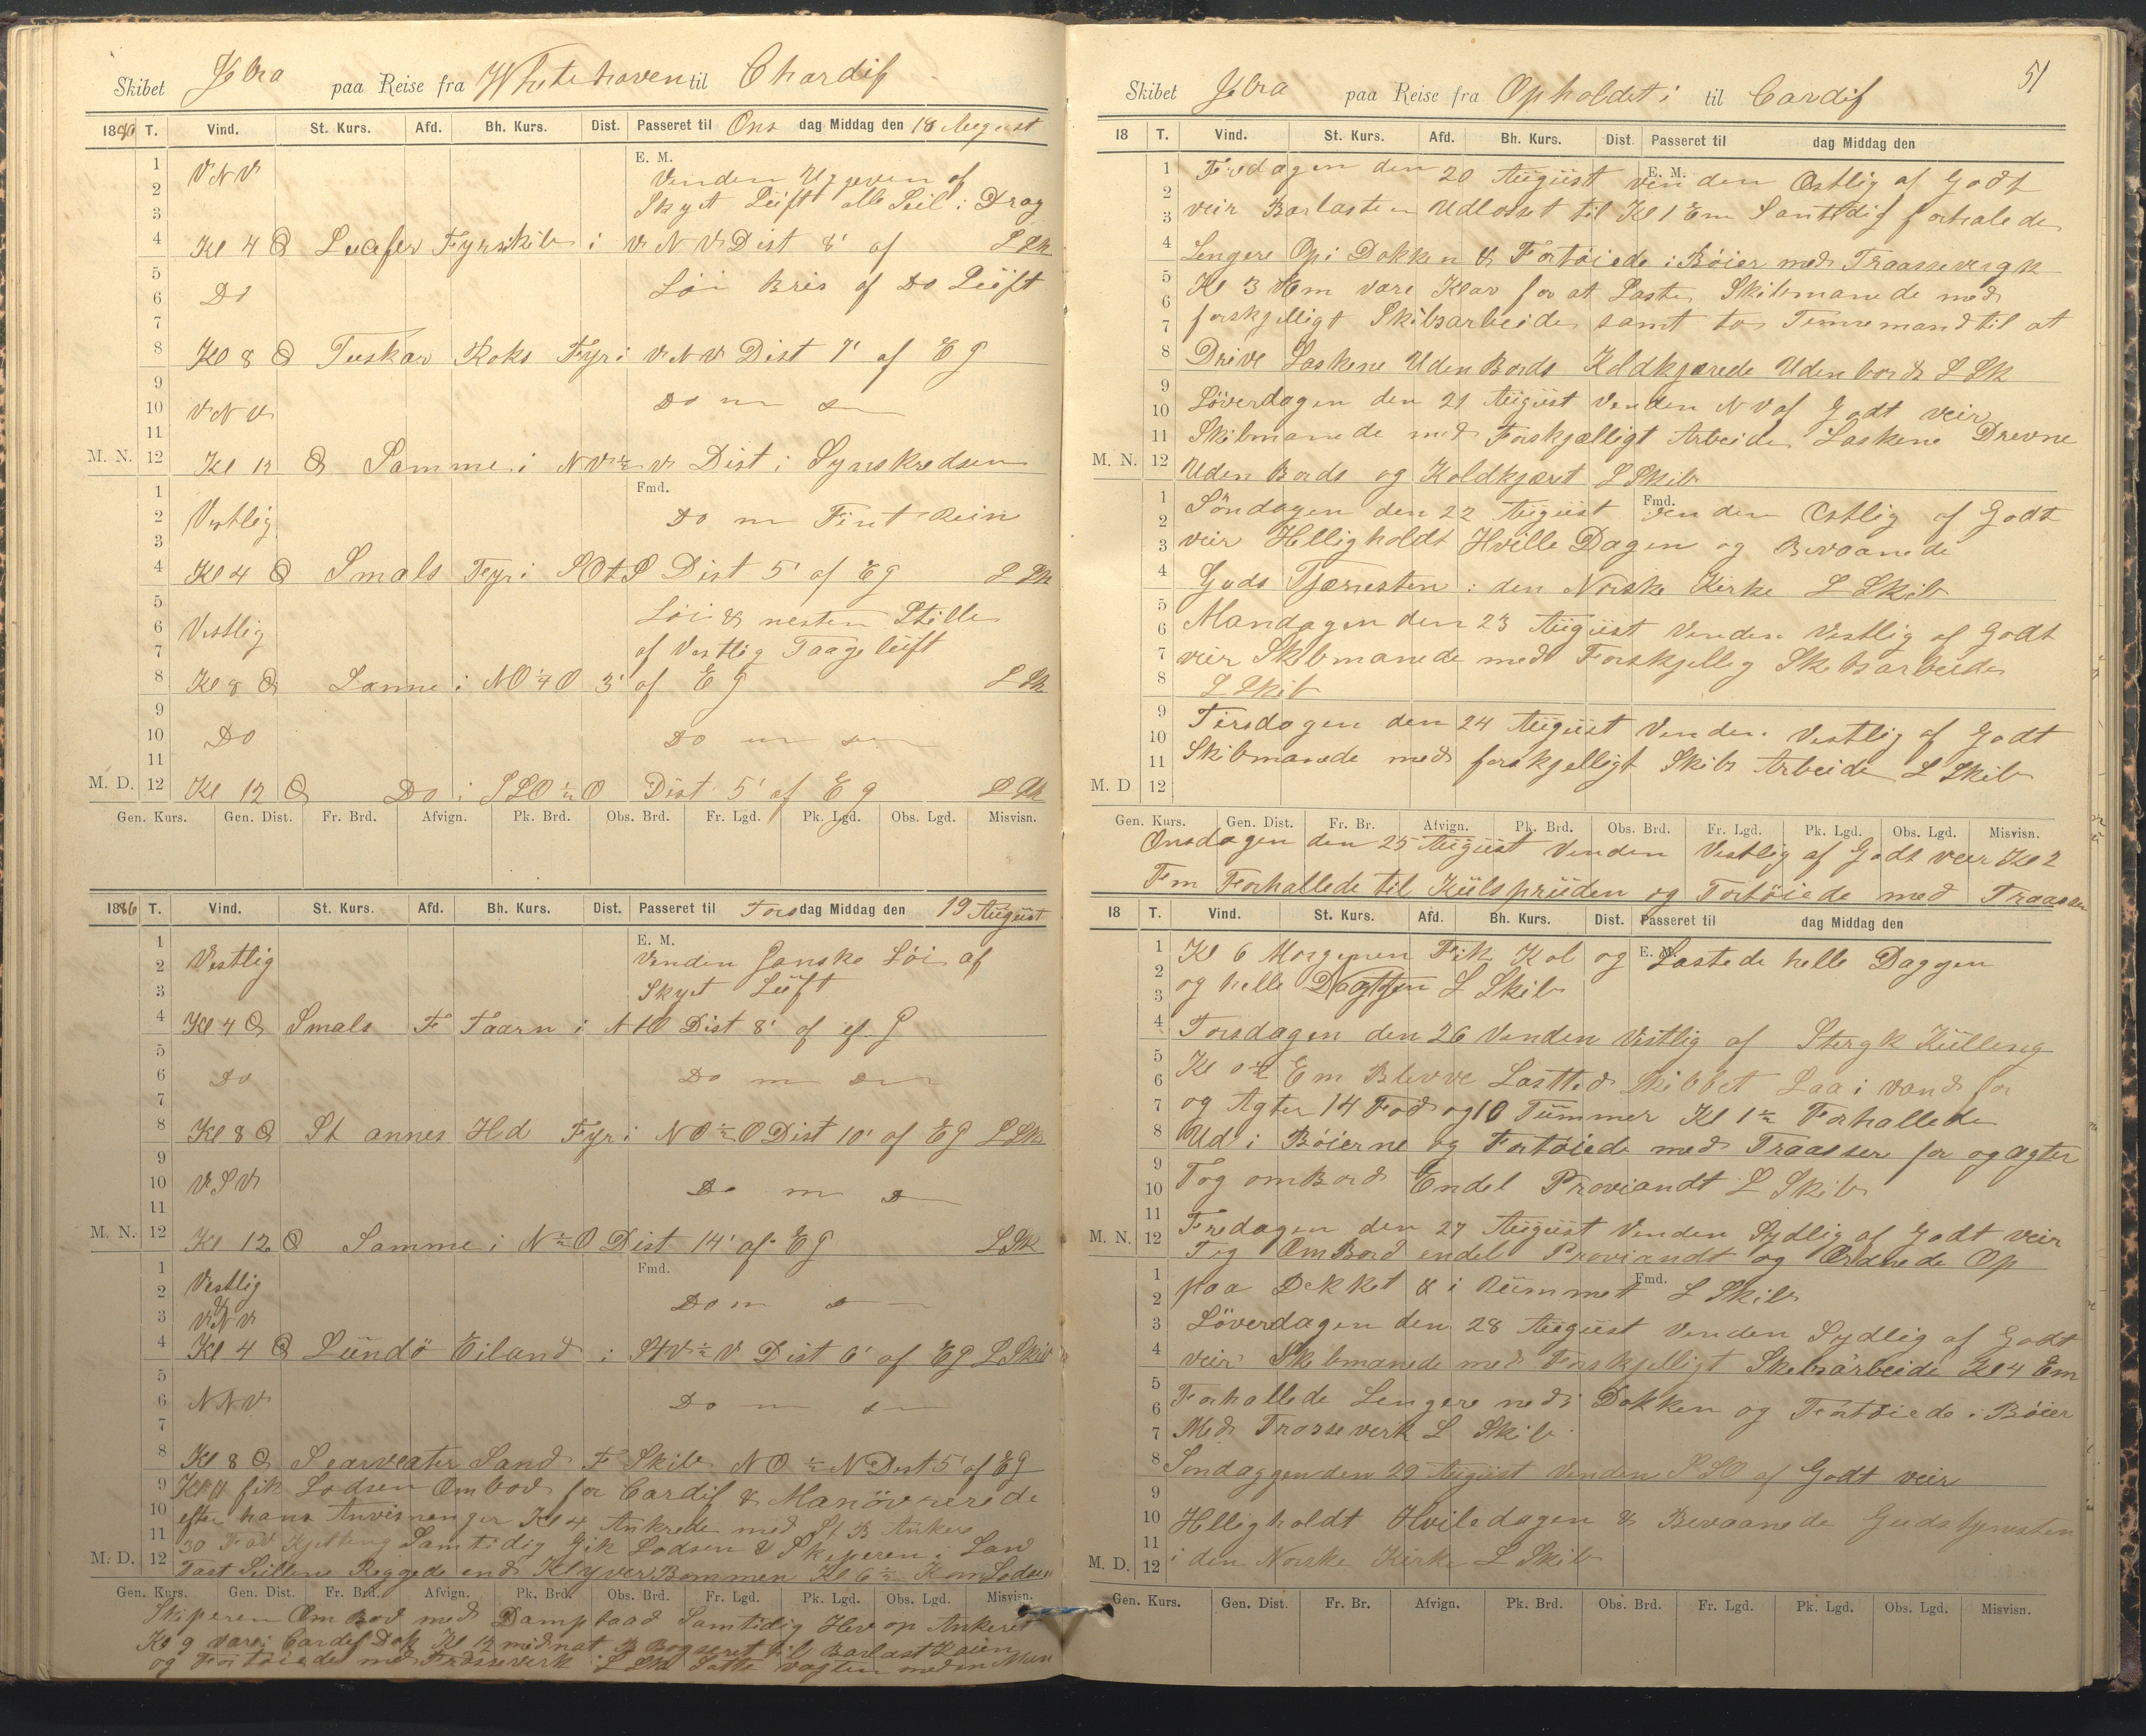 Skibet Jbra paa Reise fra Whitehaven til Chardif
1886 T. Vind. St. Kurs. Afd. Bh. Kurs. Dist. Passeret til Ons dag Middag den 18 August
E. M.
1 VNV Vinden af
2
3 Skyet Lüft alle Seil i Drag
4 Kl 4 Fyrskib i VNV Dist 8' af L Sk
5 Do Löi Bris af Do Lüft
6
7
8 Kl 8 Tuskar Roks Fyr i VNV Dist 7' af EG
9
10 VNV Do m
11
M. N. 12 Kl 12 Samme i NV½V Dist i Synskredsen
Fmd.
1
2 Vestlig Do m Fint Rein
3
4 Kl 4 Smals Fyr i SOtS Dist 5' af EG L Sk
5 Löi & nesten Stille
6 Vestlig
7 af Vestlig Taage lüft
8 Kl 8 Samme i NO¼O 3' af EG L Sk
9
10 Do Do m
11
M. D. 12 Kl 12 Do i SSO½O Dist 5' af EG L Sk
Gen. Kurs. Gen. Dist. Fr. Brd. Afvign. Pk. Brd. Obs. Brd. Fr. Lgd. Pk. Lgd. Obs. Lgd. Misvisn.
1886 T. Vind. St. Kurs. Afd. Bh. Kurs. Dist. Passeret til Tors dag Middag den 19 August
E. M.
1 Vestlig Vinden Ganske Löi af
2
3 Skyet Lüft
4 Kl 4 Smals F Taarn i NtO Dist 8' af G
5
6 Do Do m
7
8 Kl 8 St annes Hd Fyr i NO½O Dist 10' af EG L Sk
9
10 VSV Do m
11
M. N. 12 Kl 12 Samme i N½O Dist 14' af EG L Sk
Fmd.
1 Vestlig
2 & Do m
3 VNV
4 Kl 4 Lündö Eiland i StV½V Dist 6' af EG L Skib
5
6 NNV Do m
7
8 Kl 8 Searveater Sand F Skib NO½N Dist 5' af EG
9 Kl 11 fik Lodsen Ombod for Cardif & Manövrerede
10 efter hans Anvisninger Kl 4 Ankrede med St B Anker
11 30 Fav Kjetting Samtidig Gik Lodsen & Skiperen i Lan
M. D. 12 Fast Seillene Riggede ind KlyverBommen Kl 6½ Kom Lodsen
Gen. Kurs. Gen. Dist. Fr. Brd. Afvign. Pk. Brd. Obs. Brd. Fr. Lgd. Pk. Lgd. Obs. Lgd. Misvisn.
Skiperen Om Bod med Dampbaad Samtidig Hev op Ankeret
Kl 9 vare i Cardif Dok Kl 12 midnat B Bogseret til Barlast Kaien
og Fortöiede med Trosseverk L Sk Satte vagten med en Man
51
Skibet Jbra paa Reise fra Opholdet i til Cardif
18 T. Vind. St. Kurs. Afd. Bh. Kurs. Dist. Passeret til dag Middag den
E. M.
1 Fredagen den 20 August vinden Ostlig af Godt
2
3 veir Barlasten Udlosset til Kl 1 Em Samtidig forhalede
4 Lengere Op i Dokken & Fortöiede i Böier med Traasseverk
5 Kl 3 Em vare Klar for at Laste Skibmanede med
6
7 forskjelligt Skibsarbeide samt to Timmemand til at
8 Drive Laskene Uden Bords Koldkjærede Udenbords L Sk
9 Löverdagen den 21 August Vinden NV af Godt veir
10
11 Skibmanede med Forskjælligt Arbeide Laskene Drevne
M. N. 12 Uden Bords og Koldkjæret L Skib
Fmd.
1 Söndagen den 22 August vinden Ostlig af Godt
2
3 veir Helligholdt Hville Dagen og Bevaanede
4 Guds Tjænesten i den Norske Kirke L Skib
5
6 Mandagen den 23 August Vinden Vestlig af Godt
7 veir Skibmanede med Forskjellig Skibsarbeide
8 L Skib
9 Tirsdagen den 24 August Vinden Vestlig af Godt
10
11 Skibmanede med forskjelligt Skibs Arbeide L Skib
M. D 12
Gen. Kurs. Gen. Dist. Fr. Br. Afvign. Pk. Brd. Obs. Brd. Fr. Lgd. Pk. Lgd. Obs. Lgd. Misvisn.
Onsdagen den 25 August Vinden Vestlig af Godt veir Kl 2
Fm Forhallede til Külsprüden og Fortöiede med Traasser
18 T. Vind. St. Kurs. Afd. Bh. Kurs. Dist. Passeret til dag Middag den
E. M.
1 Kl 6 Morgenen Fik Kol og Lastede helle Daggen
2
3 og helle L Skib
4 Torsdagen den 26 Vinden Vestlig af Stergk Külling
5 Kl Em Blevve Lastted Skibbet Laa i vand for
6
7 og Agter 14 Fod og 10 Tümmer Kl 1½ Forhallede
8 Ud i Böierne og Fortöiede med Traasser for og agter
9
10 Tog om Bord Endel Proviandt L Skib
11
M. N. 12 Fredagen den 27 August Vinden Sydlig af Godt veir
Tog Om Bord endel Proviandt og Ordnede Op
Fmd.
1
2 paa Dekket & i Rümmet L Skib
3 Löverdagen den 28 August Vinden Sydlig af Godt
4 veir Skibmanede med Forskjelligt Skibsarbeide Kl 4 Em
5
6 Forhallede Lengere ned i Dokken og Fortöiede i Böier
7 Med Trosseverk L Skib
8 Söndaggen den 29 August Vinden SSO af Godt veir
9
10 Helligholdt Hviledagen & Bevaanede Gudstjenesten
11
M. D. 12 i den Norske Kirke L Skib
Gen. Kurs. Gen. Dist. Fr. Br. Afvign. Pk. Brd. Obs. Brd. Fr. Lgd. Pk. Lgd. Obs. Lgd. Misvisn.